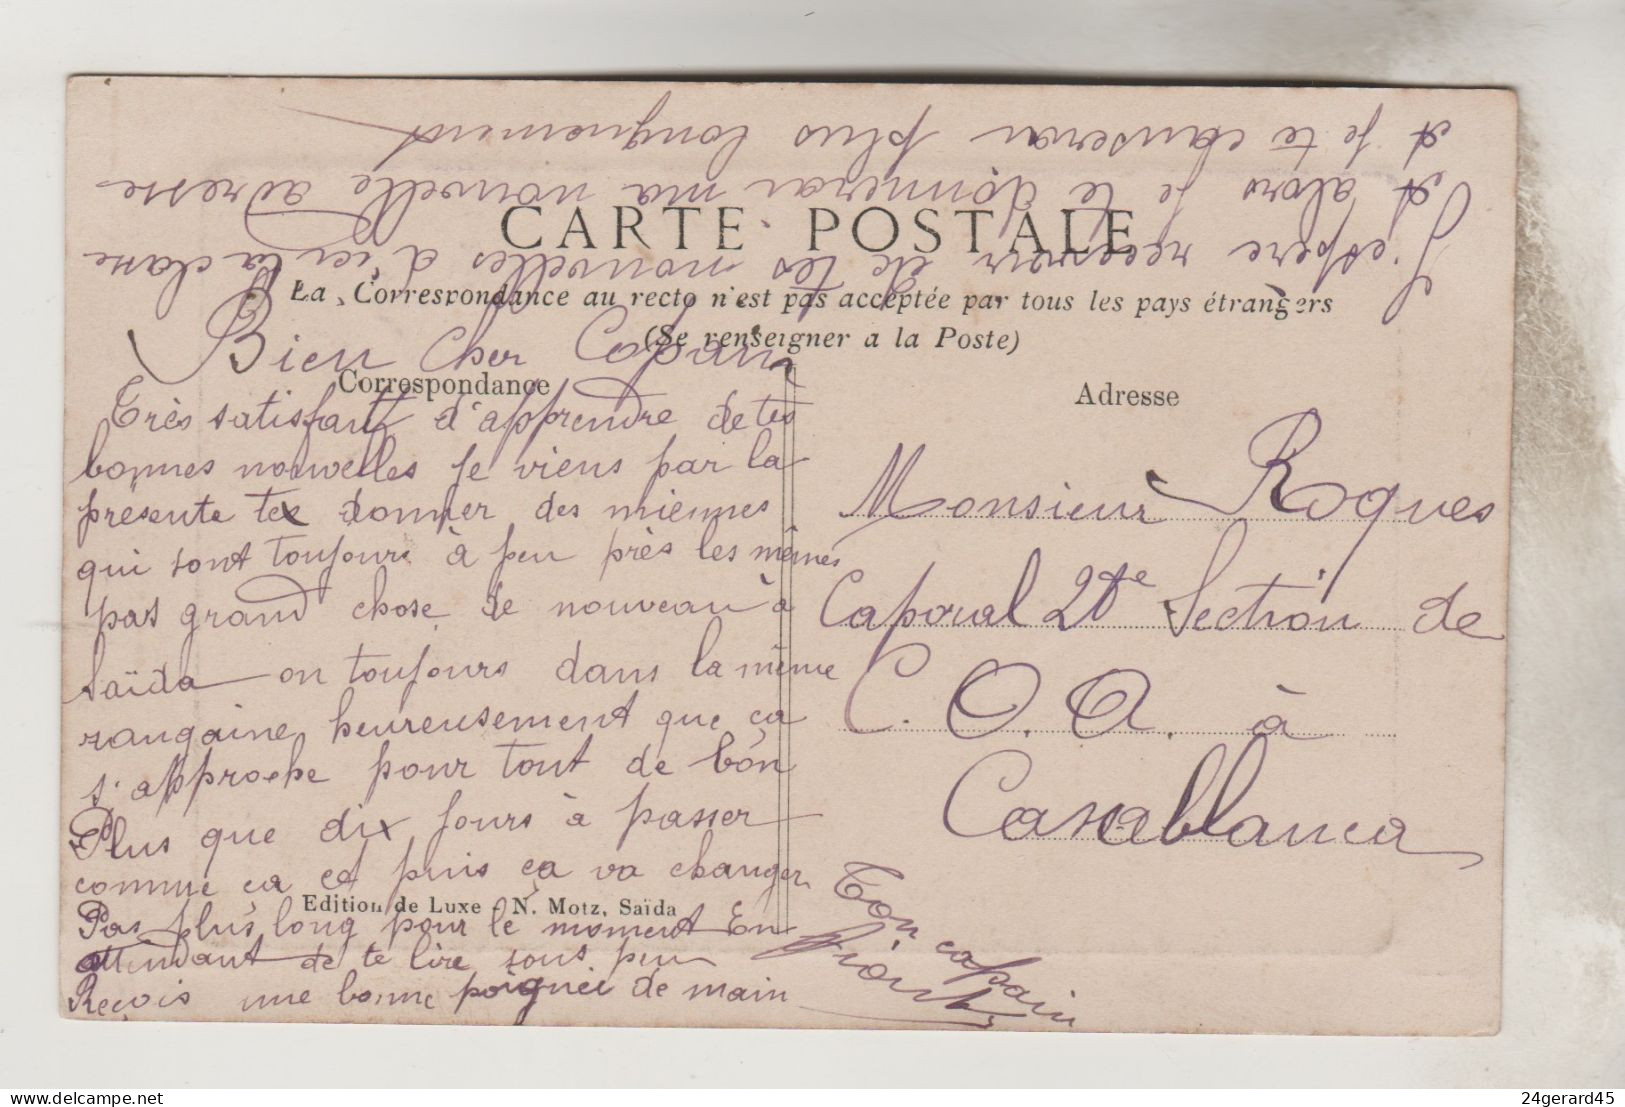 CARTE POSTALE
La Correspondance au recto n'est pas acceptée par tous les pays étrangers
(Se renseigner a la Poste)
Correspondance
Adresse
Bien Cher Copain
Très satisfait d'apprendre de tes
bonnes nouvelles je viens par la
présente te donner des miennes
qui sont toujours à peu près les mêmes
pas grand chose de nouveau à
Saïda on toujours dans la même
rangaine heureusement que ça
s'approche pour tout de bon
Plus que dix jours à passer
comme ça et puis ça va changer
Pas plus long pour le moment En
attendant de te lire sous peu
Reçois une bonne poignei de main
Ton copain
J'espère recevoir de tes nouvelles d'ici la classe
et alors je te donnerai ma nouvelle adresse
et je te causerai plus longuement
Monsieur Roques
Caporal 2de Section de
C. O. A. à
Casablanca
Edition de Luxe - N. Motz, Saïda
delcampe.net
24gerard45